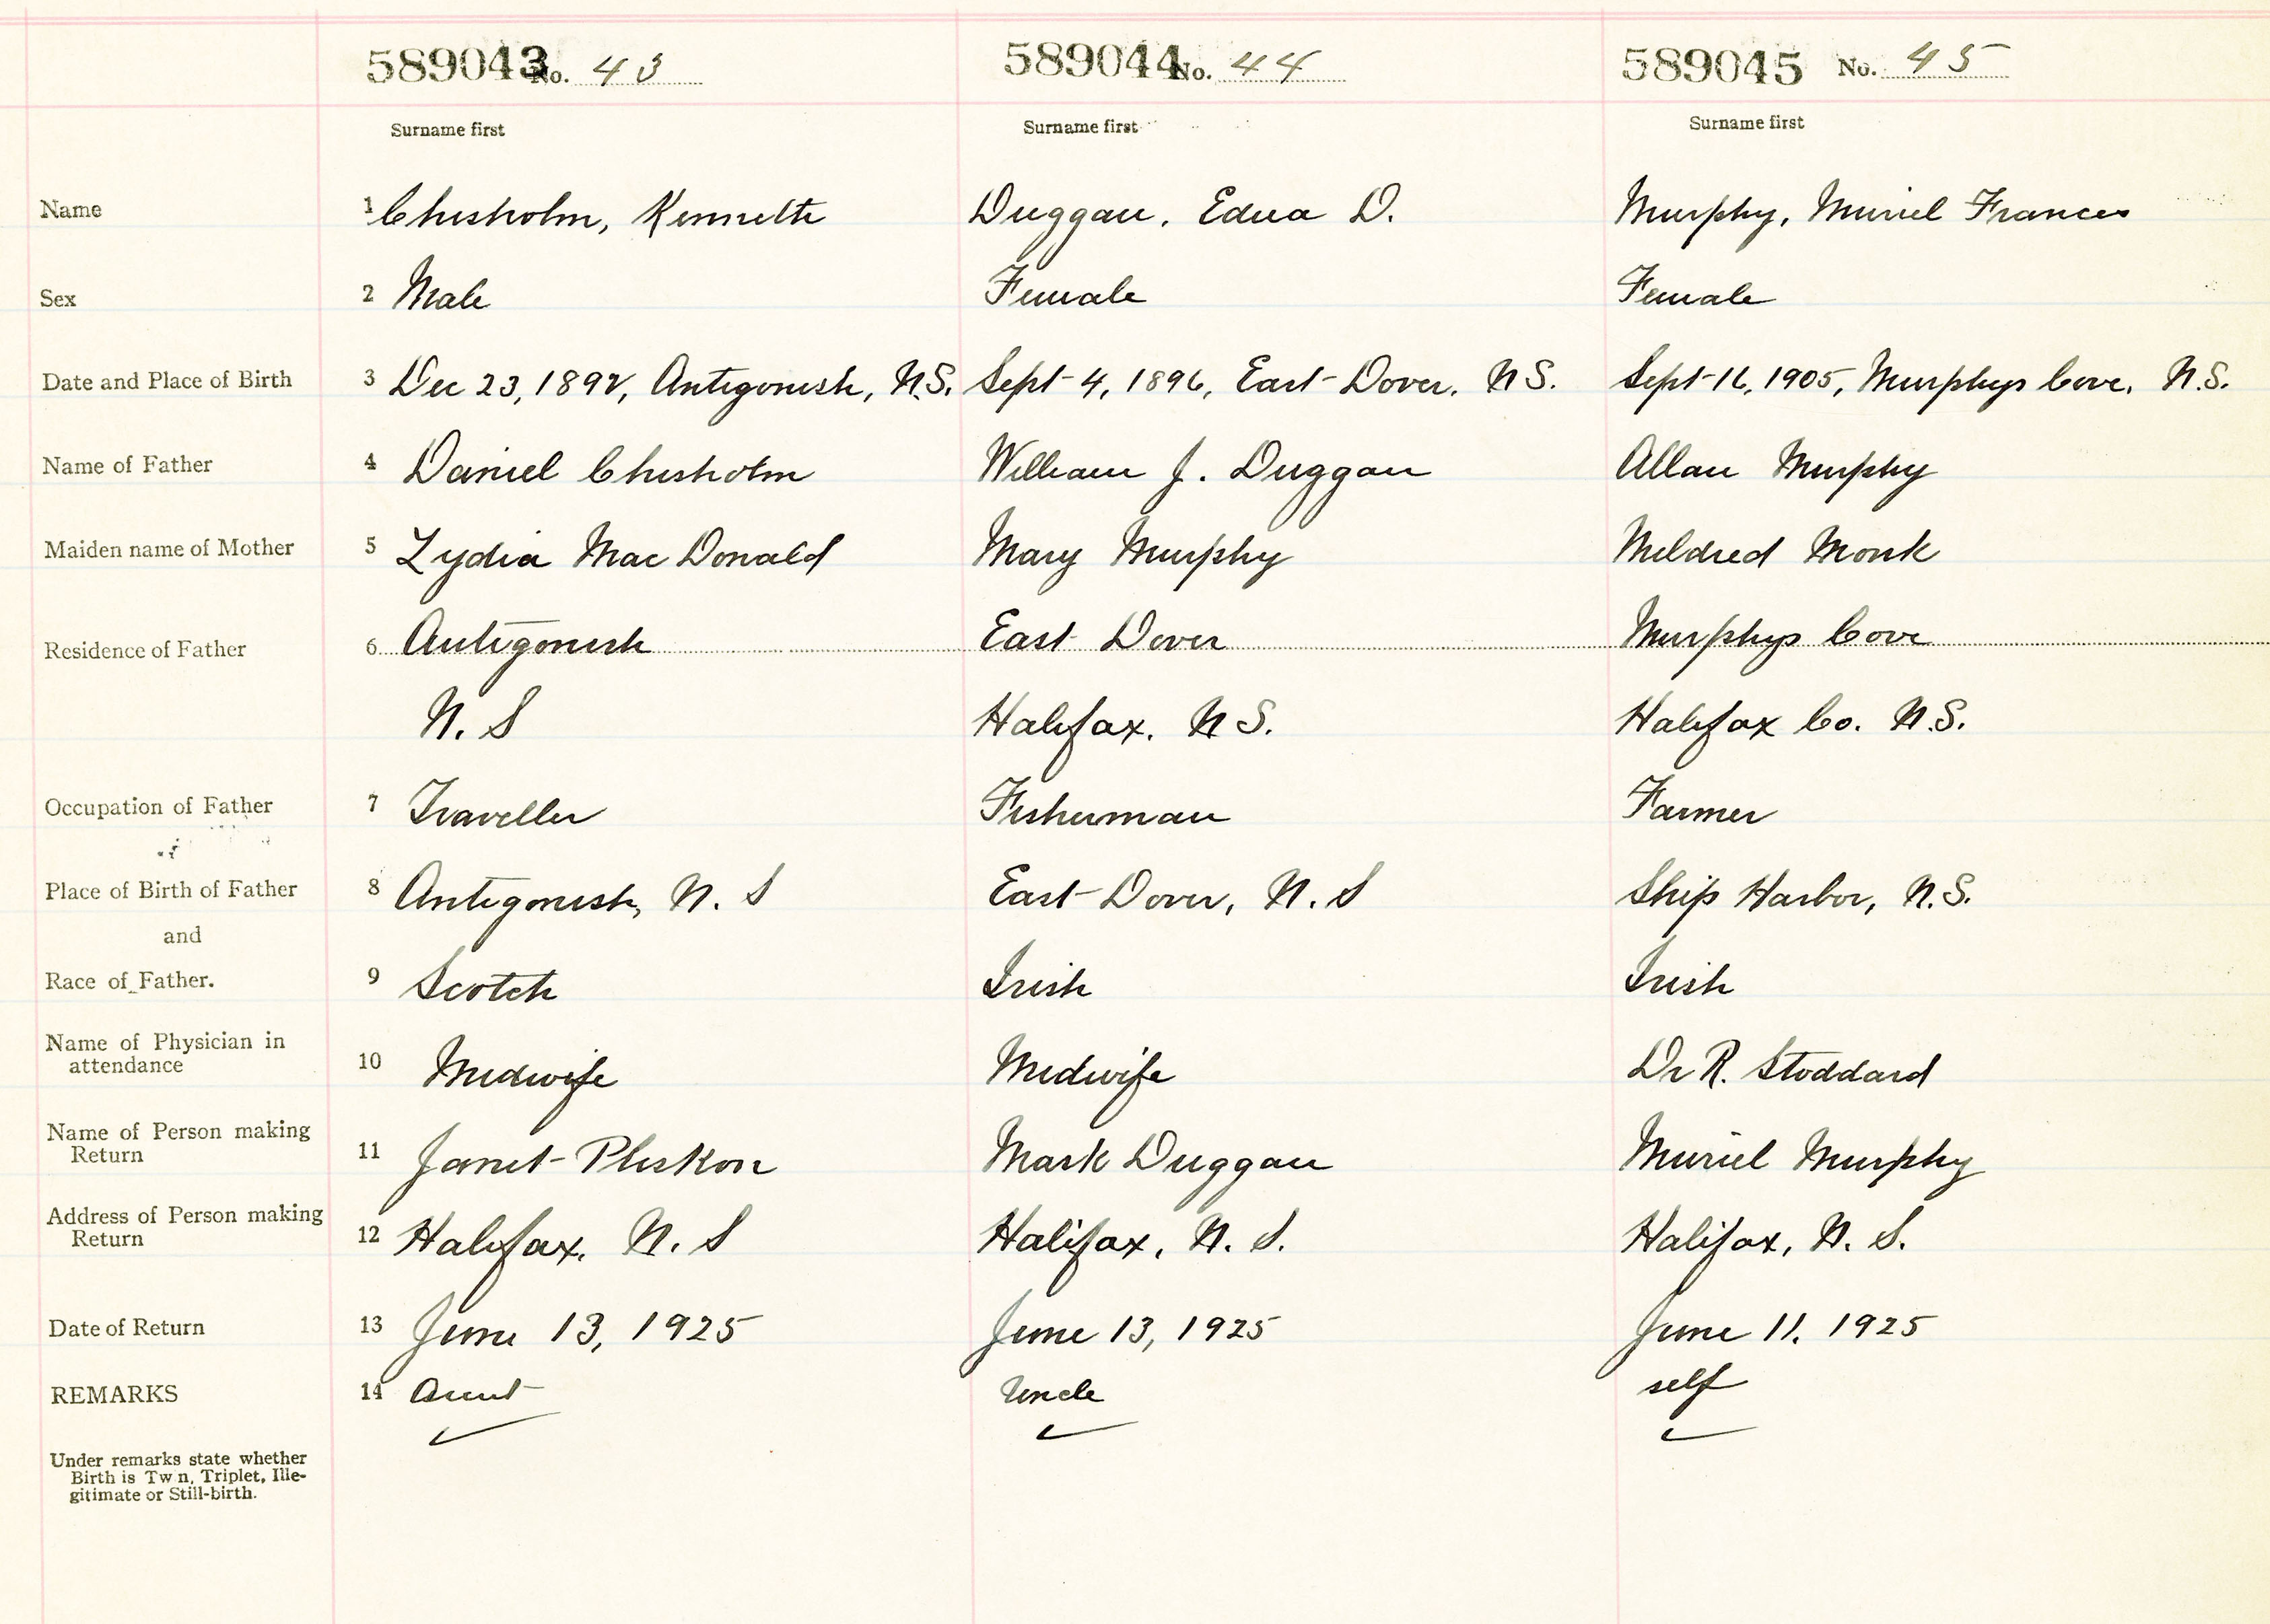 589043 No. 43 589044 No. 44 589045 No. 45
Surname first Surname first Surname first
Name 1 Chisholm, Kenneth Duggan, Edna D. Murphy, Muriel Frances
Sex 2 Male Female Female
Date and Place of Birth 3 Dec 23, 1892, Antigonish, N.S. Sept 4, 1896, East Dover, N S. Sept 16, 1905, Murphys Cove, N.S.
Name of Father 4 Daniel Chisholm William J. Duggan Allan Murphy
Maiden name of Mother 5 Lydia Mac Donald Mary Murphy Mildred Monk
Residence of Father 6 Antigonish East Dover Murphys Cove
N. S Halifax, N S. Halifax Co. N.S.
Occupation of Father 7 Traveller Fisherman Farmer
Place of Birth of Father 8 Antigonish, N. S East Dover, N. S Ship Harbor, N.S.
and
Race of Father. 9 Scotch Irish Irish
Name of Physician in
attendance 10 Midwife Midwife Dr R. Stoddard
Name of Person making
Return 11 Janet Murphy Mark Duggan Muriel Murphy
Address of Person making
Return 12 Halifax, N. S Halifax, N. S. Halifax, N. S.
Date of Return 13 June 13, 1925 June 13, 1925 June 11, 1925
REMARKS 14 Aunt Uncle self
Under remarks state whether
Birth is Tw n, Triplet, Ille-
gitimate or Still-birth.